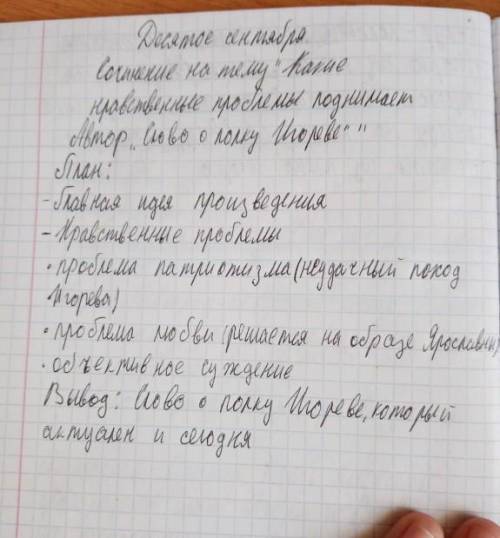 Десятое сентября
Сочинение на тему "Какие
нравственные проблемы поднимает
Автор „Слово о полку Игореве" "
План:
- Главная идея произведения
- Нравственные проблемы
• проблема патриотизма (неудачный поход
Игорева)
• проблема любви (решается на образе Ярославны)
• объективное суждение
Вывод: Слово о полку Игореве, который
актуален и сегодня